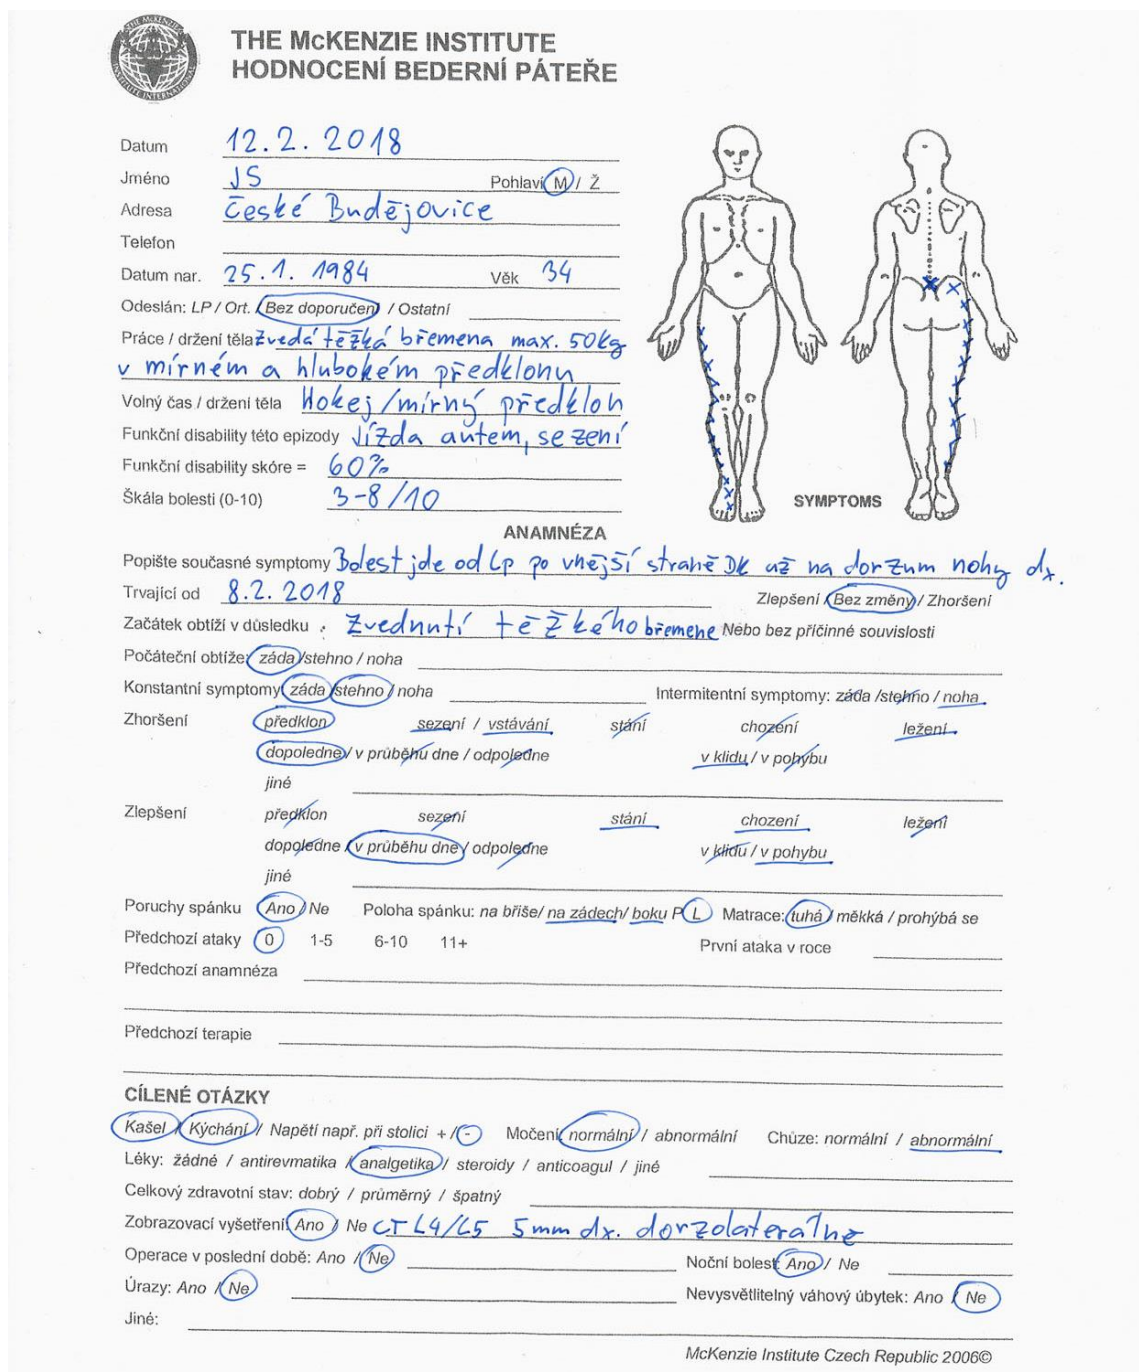 THE McKENZIE INSTITUTE
HODNOCENÍ BEDERNÍ PÁTEŘE
Datum 12.2.2018
Jméno JS Pohlaví M / Ž
Adresa České Budějovice
Telefon
Datum nar. 25.1.1984 Věk 34
Odeslán: LP / Ort. / Bez doporučení / Ostatní
Práce / držení těla zvedá těžká břemena max. 50kg
v mírném a hlubokém předklonu
Volný čas / držení těla Hokej/mírný předklon
Funkční disability této epizody Jízda autem, sezení
Funkční disability skóre = 60%
Škála bolesti (0-10) 3-8/10
SYMPTOMS
ANAMNÉZA
Popište současné symptomy Bolest jde od Lp po vnější straně DK až na dorzum nohy dx.
Trvající od 8.2.2018 Zlepšení / Bez změny / Zhoršení
Začátek obtíží v důsledku : Zvednutí těžkého břemene Nebo bez příčinné souvislosti
Počáteční obtíže: záda /stehno / noha
Konstantní symptomy: záda /stehno / noha Intermitentní symptomy: záda /stehno / noha
Zhoršení předklon sezení / vstávání stání chození ležení
dopoledne / v průběhu dne / odpoledne v klidu / v pohybu
jiné
Zlepšení předklon sezení stání chození ležení
dopoledne / v průběhu dne / odpoledne v klidu / v pohybu
jiné
Poruchy spánku Ano / Ne Poloha spánku: na břiše/ na zádech/ boku P L Matrace: tuhá / měkká / prohýbá se
Předchozí ataky 0 1-5 6-10 11+ První ataka v roce
Předchozí anamnéza
Předchozí terapie
CÍLENÉ OTÁZKY
Kašel / Kýchání / Napětí např. při stolici + / - Močení: normální / abnormální Chůze: normální / abnormální
Léky: žádné / antirevmatika / analgetika / steroidy / anticoagul / jiné
Celkový zdravotní stav: dobrý / průměrný / špatný
Zobrazovací vyšetření: Ano / Ne CT L4/L5 5mm dx. dorzolaterálně
Operace v poslední době: Ano / Ne Noční bolest: Ano / Ne
Úrazy: Ano / Ne Nevysvětlitelný váhový úbytek: Ano / Ne
Jiné:
McKenzie Institute Czech Republic 2006©